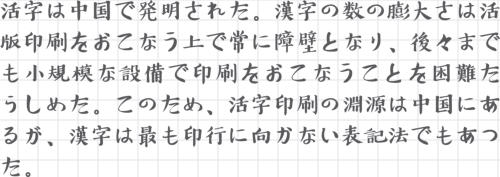 活字は中国で発明された。漢字の数の膨大さは活
版印刷をおこなう上で常に障壁となり、後々まで
も小規模な設備で印刷をおこなうことを困難た
らしめた。このため、活字印刷の淵源は中国にあ
るが、漢字は最も印行に向かない表記法でもあっ
た。